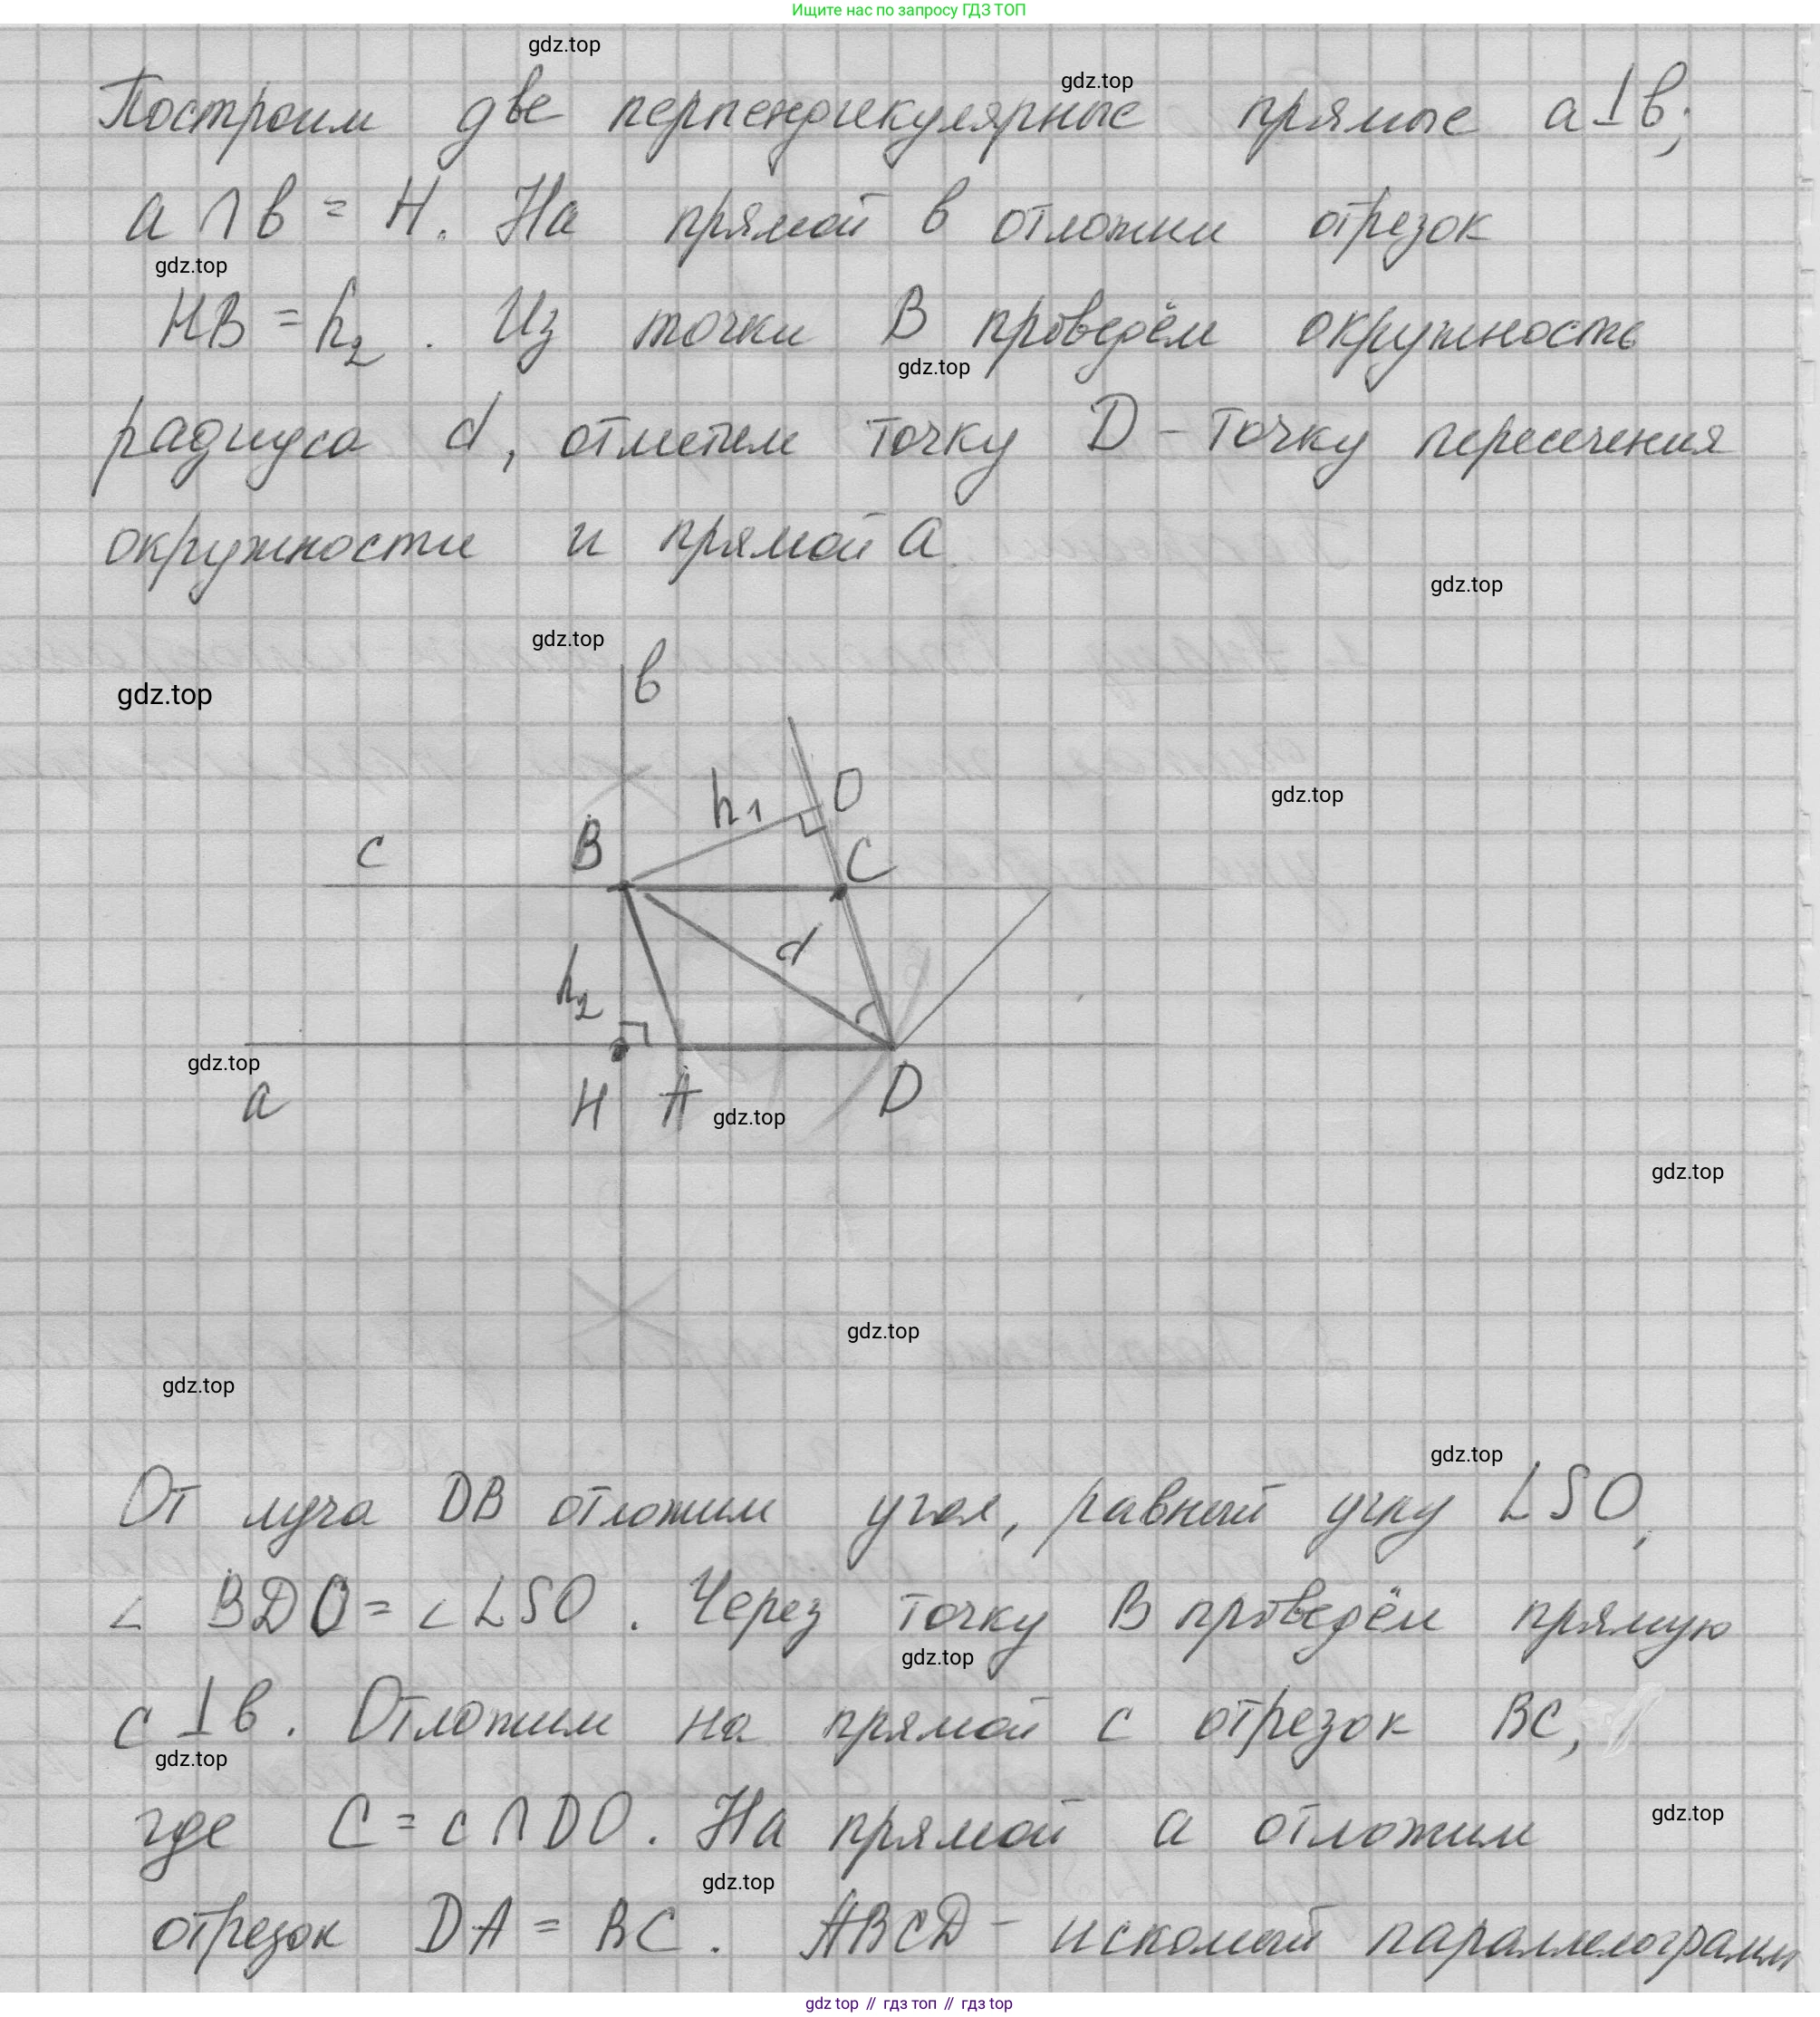 Ищите нас по запросу ГДЗ ТОП
gdz.top
gdz.top
Построим две перпендикулярные прямые a⊥b;
a ∩ b = H. На прямой b отложим отрезок
gdz.top
HB = h₂. Из точки B проведём окружность
gdz.top
радиуса d, отметим точку D - точку пересечения
окружности и прямой a.
gdz.top
gdz.top
b
gdz.top
h₁
O
gdz.top
c
B
C
d
h₂
gdz.top
a
H
A
D
gdz.top
gdz.top
gdz.top
gdz.top
gdz.top
От луча DB отложим угол, равный углу LSO,
∠ BDO = ∠ LSO. Через точку B проведём прямую
gdz.top
c ⊥ b. Отложим на прямой c отрезок BC,
gdz.top
где C = c ∩ DO. На прямой a отложим
gdz.top
gdz.top
отрезок DA = BC. ABCD - искомый параллелограмм
gdz top // гдз топ // гдз top